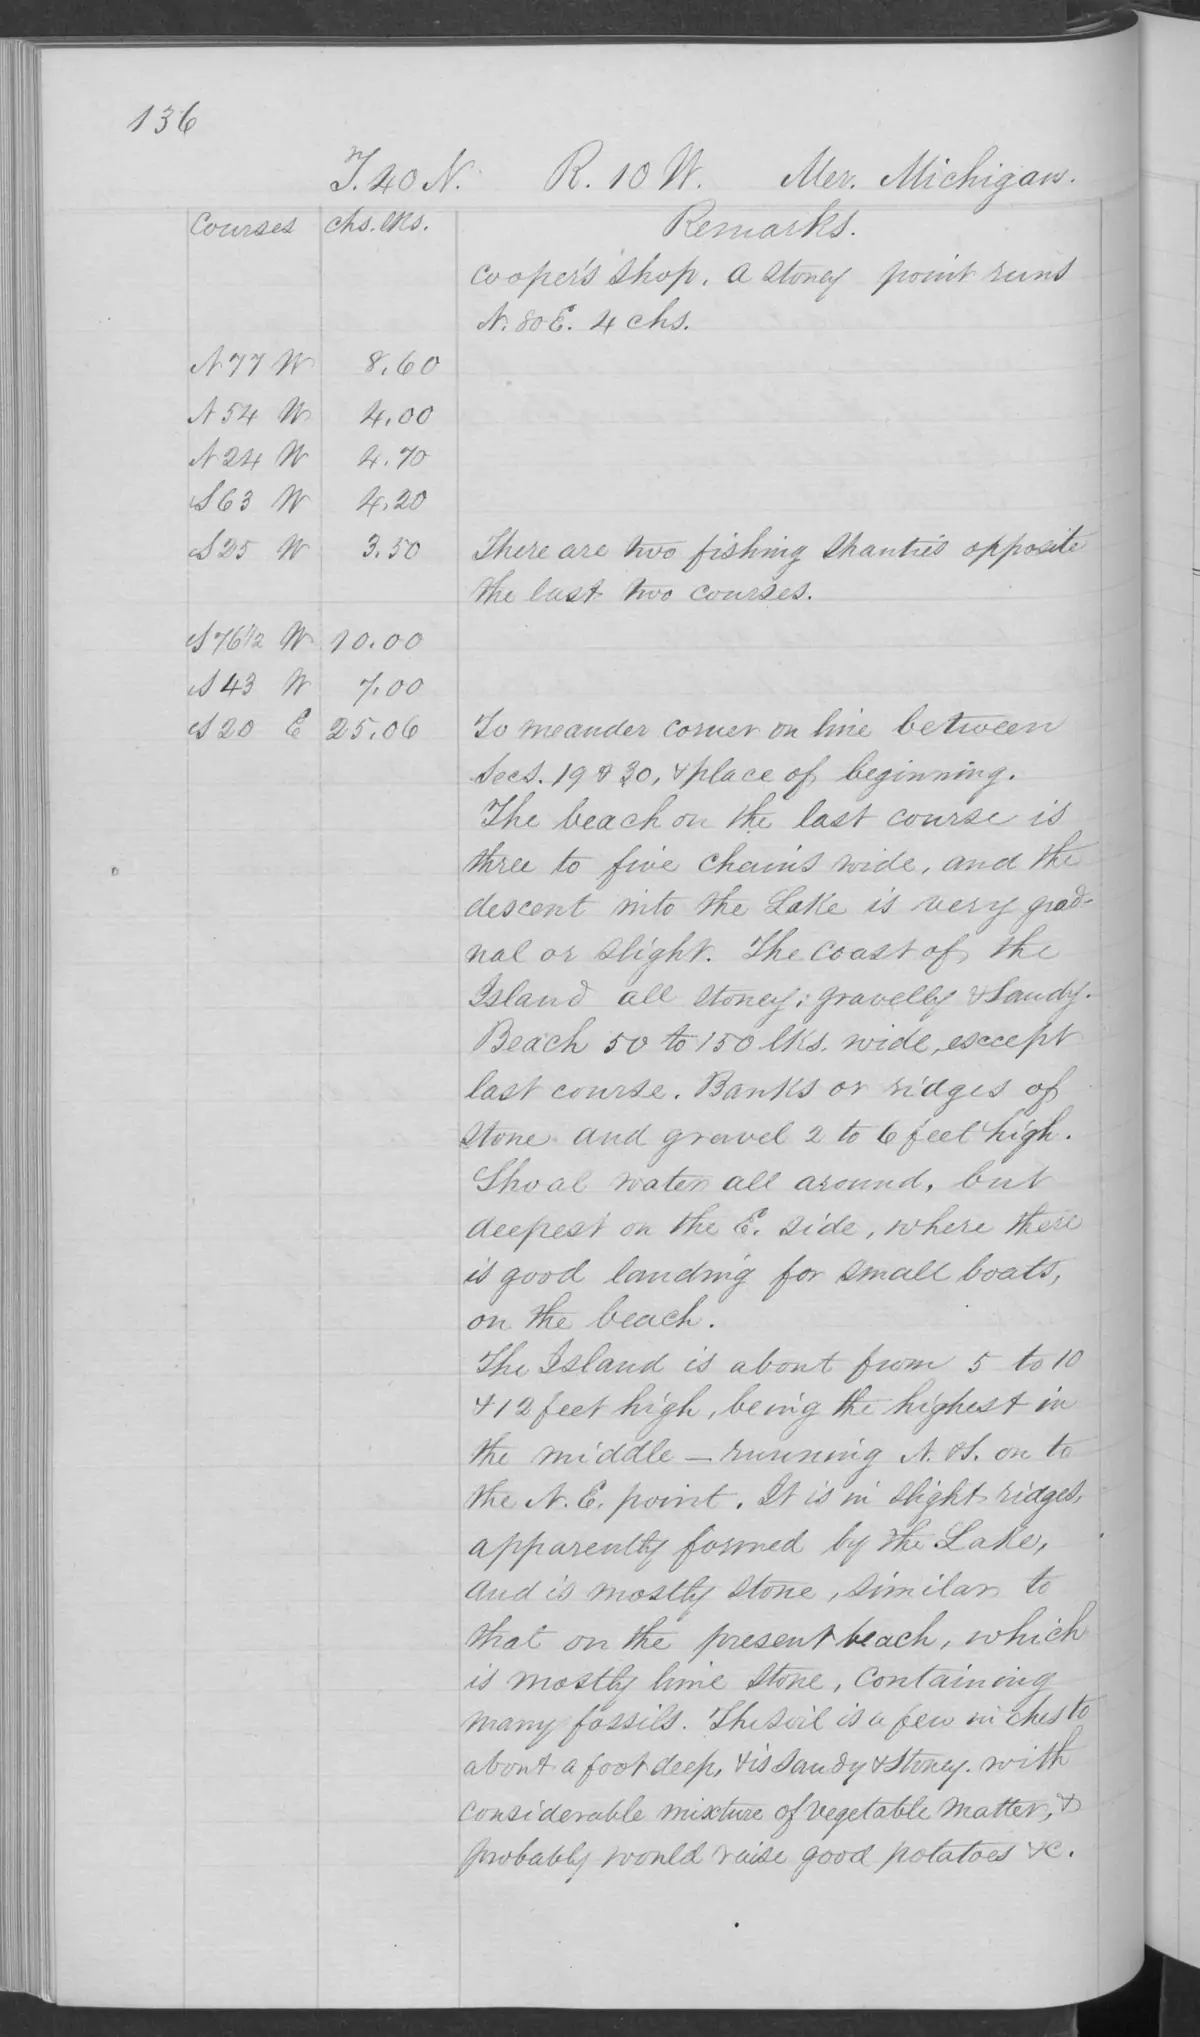 136
T. 40 N. R. 10 W. Mer. Michigan.
Courses chs. lks. Remarks.
Cooper's Shop. A Stoney point runs
N. 80 E. 4 chs.
N 77 W 8.60
N 54 W 4.00
N 24 W 4.70
S 63 W 4.20
S 25 W 3.50 There are two fishing Shanties opposite
the last two courses.
S 76 1/2 W 10.00
S 43 W 7.00
S 20 E 25.06 To meander corner on line between
Secs. 19 & 30, & place of beginning.
The beach on the last course is
three to five chains wide, and the
descent into the Lake is very grad-
ual or slight. The coast of the
Island all stoney; gravelly & Sandy.
Beach 50 to 150 lks. wide, except
last course. Banks or ridges of
Stone and gravel 2 to 6 feet high.
Shoal water all around, but
deepest on the E. side, where there
is good landing for small boats,
on the beach.
The Island is about from 5 to 10
& 12 feet high, being the highest in
the middle — running N. & S. on to
the N. E. point. It is in slight ridges,
apparently formed by the Lake,
and is mostly Stone, similar to
that on the present beach, which
is mostly lime Stone, containing
many fossils. The soil is a few inches to
about a foot deep, & is Sandy & Stoney. with
considerable mixture of vegetable matter, &
probably would raise good potatoes &c.